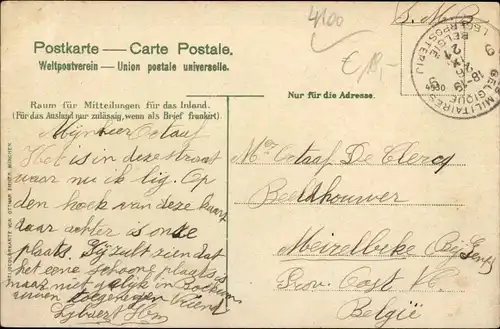 4100
S. M. B.
Postkarte — Carte Postale.
Weltpostverein — Union postale universelle.
€ 18,-
POSTES MILITAIRES BELGIQUE
BELGIE LEGERPOSTERIJ
18-19
26 IX
24
9
9
4930
Raum für Mitteilungen für das Inland.
(Für das Ausland nur zulässig, wenn als Brief frankirt).
Nur für die Adresse.
Mijnheer Ostaaf
Het is in deze straat
waar nu ik lig. Op
den hoek van deze
daar achter is onze
plaats. Gij zult zien dat
het eene schoone plaats is
maar niet gelijk in Bochum
uwen toegenegen Vriend
Mr. Ostaaf De Clercq
Beeldhouwer
Meirelbeke (Bij Gent)
Prov. Oost Vl.
België
VELTEN'S VOR OTTMAR ZIEHER, MÜNCHEN